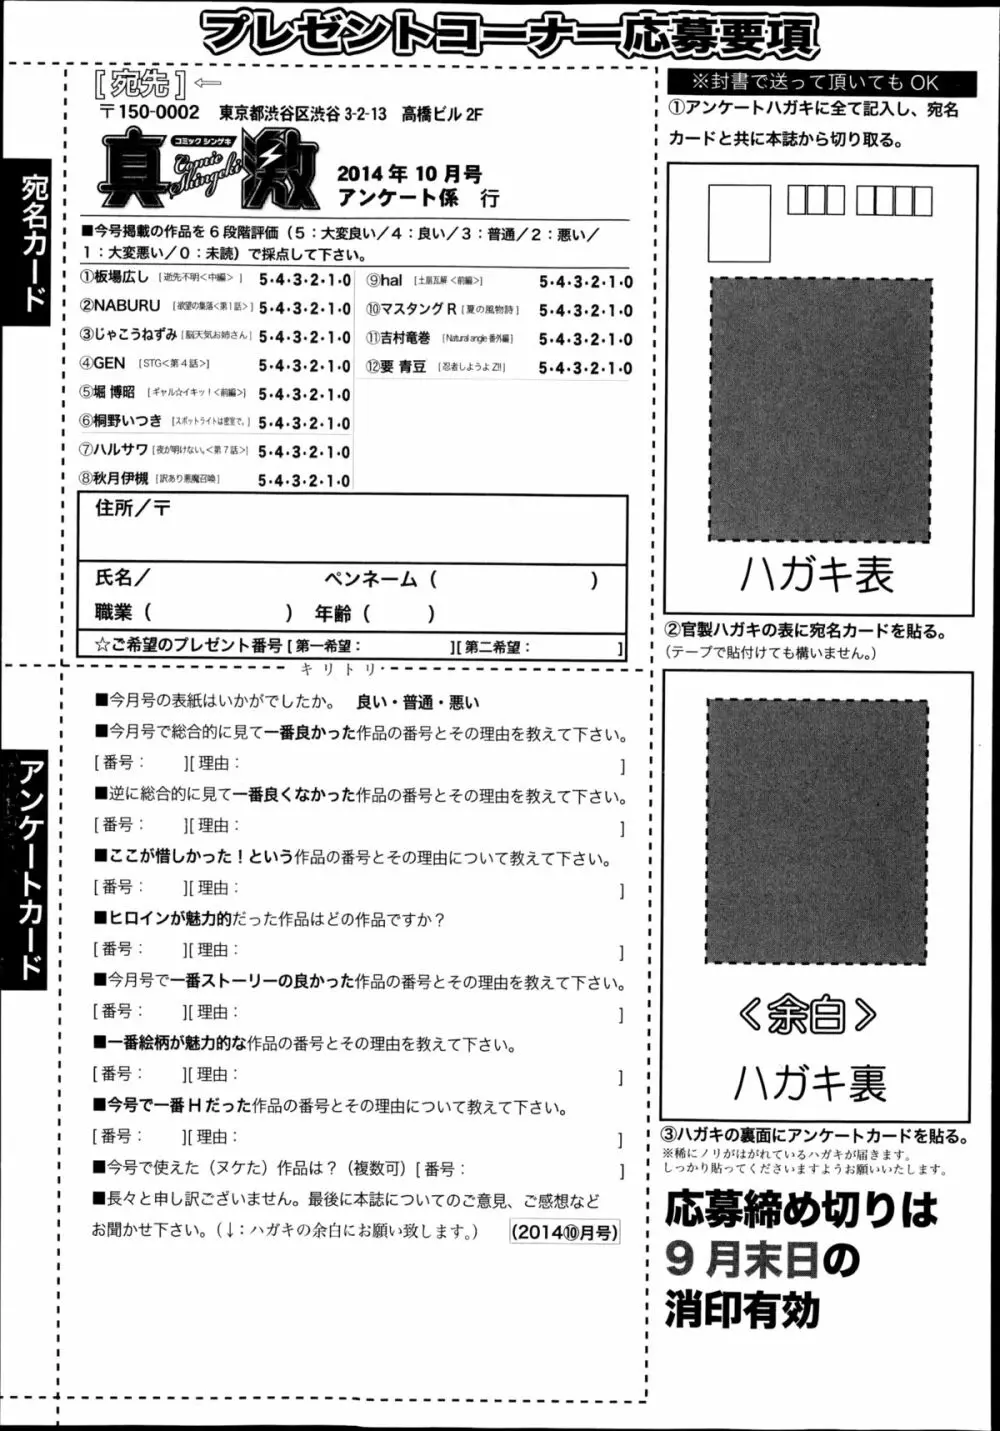 プレゼントコーナー応募要項
宛名カード
[ 宛先 ] ←
〒150-0002 東京都渋谷区渋谷 3-2-13 高橋ビル 2F
真激
コミックシンゲキ
Comic Shingeki
2014 年 10 月号
アンケート係 行
■今号掲載の作品を 6 段階評価（5：大変良い／4：良い／3：普通／2：悪い／
1：大変悪い／0：未読）で採点して下さい。
①板場広し [ 逝先不明<中編> ] 5・4・3・2・1・0
②NABURU [ 欲望の集落<第1話> ] 5・4・3・2・1・0
③じゃこうねずみ [ 脳天気お姉さん ] 5・4・3・2・1・0
④GEN [ STG<第4話> ] 5・4・3・2・1・0
⑤堀 博昭 [ ギャル☆イキッ！<前編> ] 5・4・3・2・1・0
⑥桐野いつき [ スポットライトは密室で。 ] 5・4・3・2・1・0
⑦ハルサワ [ 夜が明けない。<第7話> ] 5・4・3・2・1・0
⑧秋月伊槻 [ 訳あり悪魔召喚 ] 5・4・3・2・1・0
⑨hal [ 土崩瓦解<前編> ] 5・4・3・2・1・0
⑩マスタングR [ 夏の風物詩 ] 5・4・3・2・1・0
⑪吉村竜巻 [ Natural angle 番外編 ] 5・4・3・2・1・0
⑫要 青豆 [ 忍者しようよZ!! ] 5・4・3・2・1・0
住所／〒
氏名／ ペンネーム（ ）
職業（ ） 年齢（ ）
☆ご希望のプレゼント番号 [ 第一希望： ][ 第二希望： ]
キリトリ
アンケートカード
■今月号の表紙はいかがでしたか。 良い・普通・悪い
■今月号で総合的に見て一番良かった作品の番号とその理由を教えて下さい。
[ 番号： ][ 理由： ]
■逆に総合的に見て一番良くなかった作品の番号とその理由を教えて下さい。
[ 番号： ][ 理由： ]
■ここが惜しかった！という作品の番号とその理由について教えて下さい。
[ 番号： ][ 理由： ]
■ヒロインが魅力的だった作品はどの作品ですか？
[ 番号： ][ 理由： ]
■今月号で一番ストーリーの良かった作品の番号とその理由を教えて下さい。
[ 番号： ][ 理由： ]
■一番絵柄が魅力的な作品の番号とその理由を教えて下さい。
[ 番号： ][ 理由： ]
■今号で一番Hだった作品の番号とその理由について教えて下さい。
[ 番号： ][ 理由： ]
■今号で使えた（ヌケた）作品は？（複数可）[ 番号： ]
■長々と申し訳ございません。最後に本誌についてのご意見、ご感想など
お聞かせ下さい。（↓：ハガキの余白にお願い致します。） (2014⑩月号)
※封書で送って頂いても OK
①アンケートハガキに全て記入し、宛名
カードと共に本誌から切り取る。
ハガキ表
②官製ハガキの表に宛名カードを貼る。
（テープで貼付けても構いません。）
＜余白＞
ハガキ裏
③ハガキの裏面にアンケートカードを貼る。
※稀にノリがはがれているハガキが届きます。
しっかり貼ってくださいますようお願いいたします。
応募締め切りは
9 月末日の
消印有効